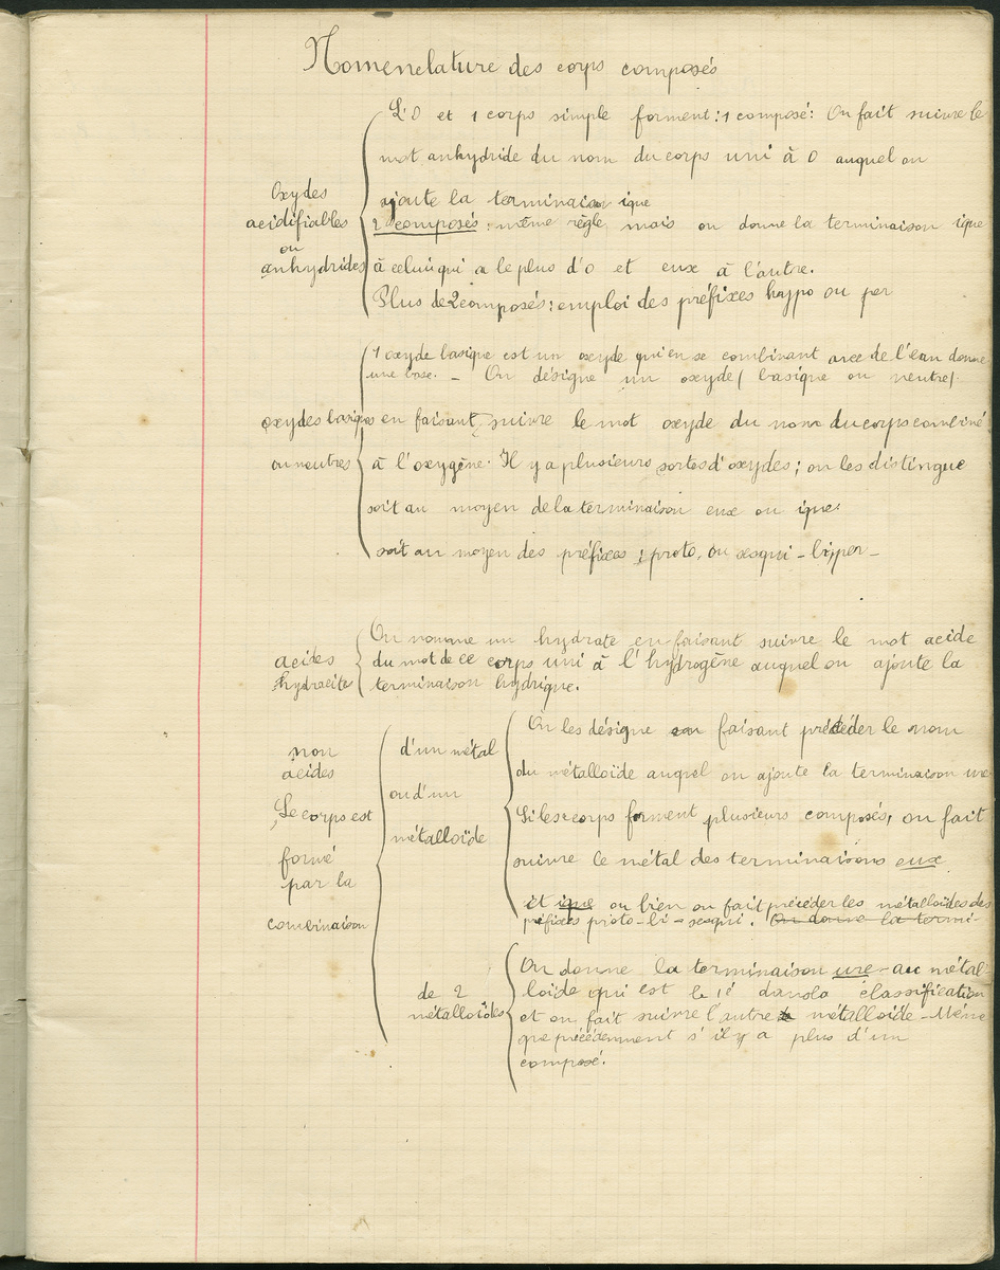 Nomenclature des corps composés
L'O et 1 corps simple forment : 1 composé : On fait suivre le
mot anhydride du nom du corps uni à O auquel on
Oxydes
ajoute la terminaison ique
acidifiables
2 composés : même règle mais on donne la terminaison ique
ou
anhydrides
à celui qui a le plus d'O et eux à l'autre.
Plus de 2 composés : emploi des préfixes hypo ou per
1 oxyde basique est un oxyde qui en se combinant avec de l'eau donne
une base. - On désigne un oxyde ( basique ou neutre )
oxydes basiques
en faisant suivre le mot oxyde du nom du corps combiné
ou neutres
à l'oxygène. Il y a plusieurs sortes d'oxydes ; on les distingue
soit au moyen de la terminaison eux ou ique.
soit au moyen des préfixes : proto, ou sesqui - bi, per -
On nomme un hydrate en faisant suivre le mot acide
acides
du mot de ce corps uni à l'hydrogène auquel on ajoute la
hydracite
terminaison hydrique.
non
acides
Le corps est
formé
par la
combinaison
d'un métal
ou d'un
métalloïde
On les désigne en faisant précéder le nom
du métalloïde auquel on ajoute la terminaison ure
Si les corps forment plusieurs composés, on fait
suivre le métal des terminaisons eux
et ique ou bien on fait précéder les métalloïdes des
préfixes proto - bi - sesqui. On donne la termi-
de 2
métalloïdes
On donne la terminaison ure - au métal
loïde qui est le 1é dans la classification
et on fait suivre l'autre métalloïde - Même
que précédemment s'il y a plus d'un
composé.